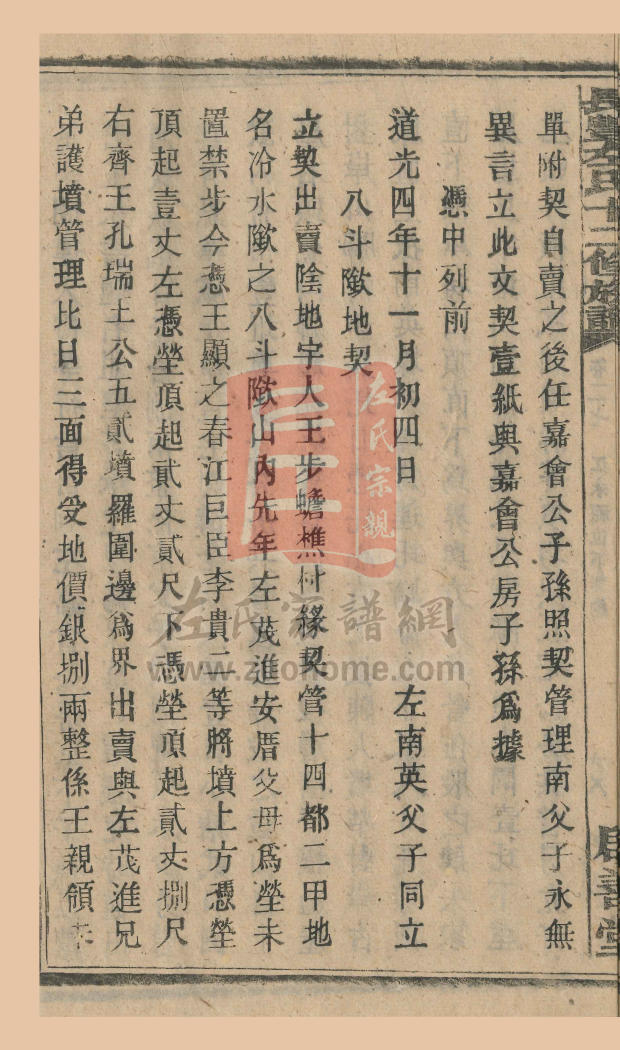 單附契自賣之後任嘉會公子孫照契管理南父子永無
異言立此文契壹紙與嘉會公房子孫爲據
憑中列前
道光四年十一月初四日 左南英父子同立
八斗歟地契
立契出賣陰地字人王步蟾樵村緣契管十四都二甲地
名冷水歟之八斗歟山內先年左茂進安厝父母爲塋未
置禁步今憑王顯之春江巨臣李貴二等將墳上方憑塋
頂起壹丈左憑塋頂起貳丈貳尺下憑塋頂起貳丈捌尺
右齊王孔瑞土公五貳墳羅圍邊爲界出賣與左茂進兄
弟護墳管理比日三面得受地價銀捌兩整係王親領
左氏十二修族譜
啟善堂
左氏宗親
左氏家譜網
www.zuohome.com